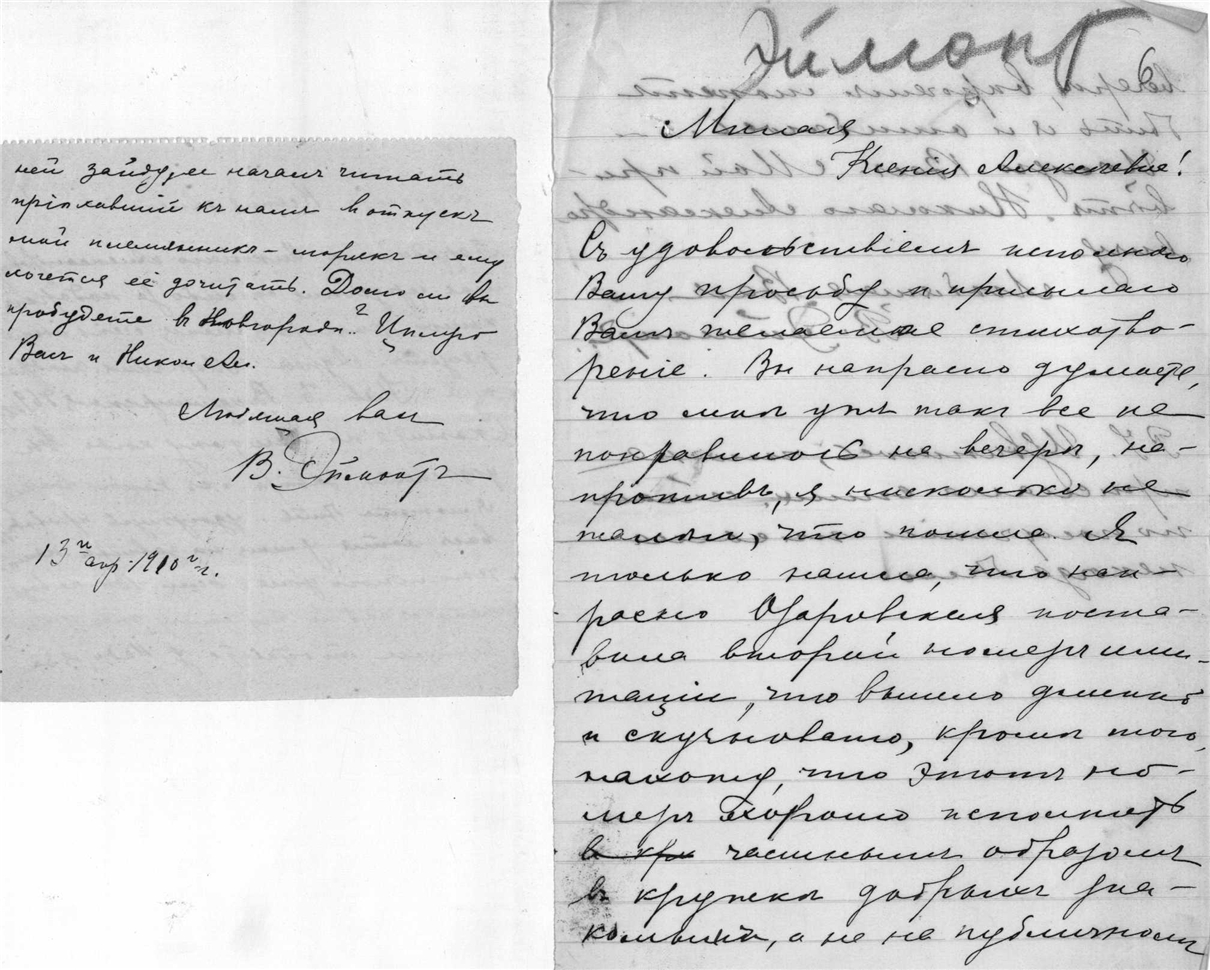 ней зайду, ее началъ читать
пріѣхавшій къ намъ въ отпускъ
мой племянникъ – морякъ и ему
хочется её дочитать. Долго ли вы
пробудете в Новгородѣ? Цѣлую
Васъ и Никол Ал.
Любящая васъ
В. Эймонтъ
13го апр. 1910 г.
Эймонт
6
Милая
Ксенія Алексѣевна!
Съ удовольствіемъ исполняю
Вашу просьбу и присылаю
Вамъ желаемое стихотво-
реніе. Вы напрасно думаете,
что мнѣ ужъ такъ все не
понравилось на вечерѣ, на-
противъ, я нисколько не
жалѣю, что пошла. Я
только нашла, что нап-
расно Озаровская поста-
вила второй номеръ ими-
таціи, что вышло длинно
и скучновато, кромѣ того,
нахожу, что этотъ но-
меръ хорошо исполнять
в кр частнымъ образомъ
въ кружкѣ добрыхъ зна-
комыхъ, а не на публичномъ